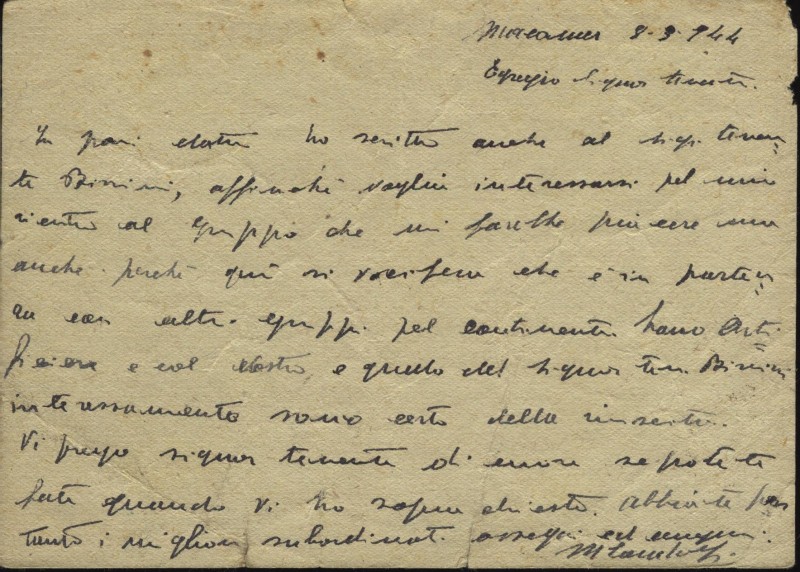 8-3-944
Egregio Signor tenente.
In pari data ho scritto anche al sig. tenen=
te Bissini, affinché voglia interessarsi pel mio
rientro al gruppo che mi farebbe piacere ma
anche perché qui si vocifera che è in parten=
za con altri gruppi pel continente. Sono Arti=
fiere e col Vostro e quello del Signor ten. Bissini
interessamento sono certo della riuscita.
Vi prego signor tenente di cuore se potete
fate quando vi ho sopra chiesto. Abbiate per
tanto i migliori subordinati ossequi ed auguri.